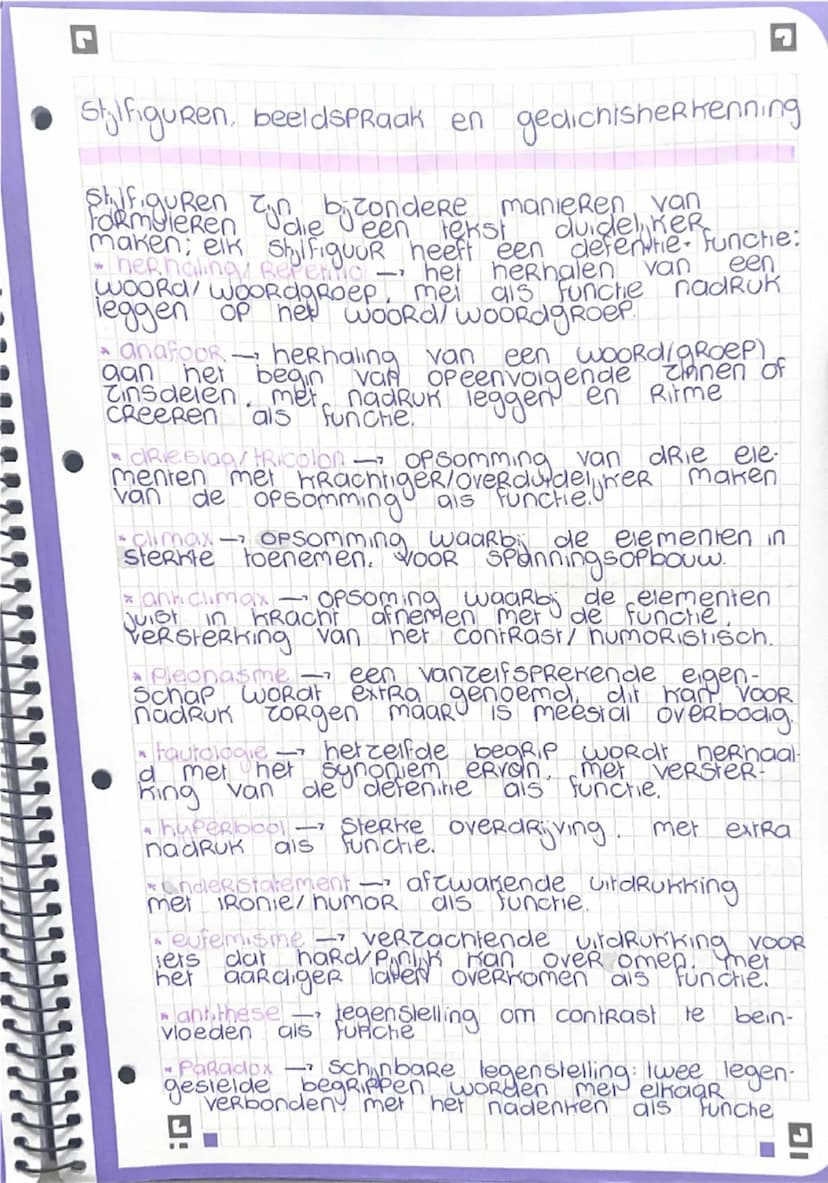 Stijlfiguren, beeldspraak en gedichtsherkenning
Stijlfiguren zijn bijzondere manieren van
formuleren die een tekst duidelijker
maken; elk stijlfiguur heeft een defenitie + functie:
* herhaling/Repetitio → het herhalen van een
woord/woordgroep, met als functie nadruk
leggen op het woord/woordgroep.
* anafoor → herhaling van een woord(groep)
aan het begin van opeenvolgende zinnen of
zinsdelen, met nadruk leggen en Ritme
creeren als functie.
* drieslag/tricolon → opsomming van drie ele-
menten met krachtiger/overduidelijker maken
van de opsomming als functie.
* climax → opsomming waarbij de elementen in
sterkte toenemen, voor spanningsopbouw.
* anticlimax → opsoming waarbij de elementen
juist in kracht afnemen met de functie,
versterking van het contrast/humoristisch.
* Pleonasme → een vanzelfsprekende eigen-
schap wordt extra genoemd, dit kan voor
nadruk zorgen maar is meestal overbodig.
* tautologie → hetzelfde begrip wordt herhaal-
d met het synoniem ervan, met verster-
king van de defenitie als functie.
* hyperbool → sterke overdrijving, met extra
nadruk als functie.
* understatement → afzwakende uitdrukking
met ironie/humor als functie.
* eufemisme → verzachtende uitdrukking voor
iets dat hard/pijnlijk kan over omen, met
het aardiger laten overkomen als functie.
* antithese → tegenstelling om contrast te bein-
vloeden als functie
* Paradox → schijnbare tegenstelling: twee tegen-
gestelde begrippen worden met elkaar
verbonden, met het nadenken als functie